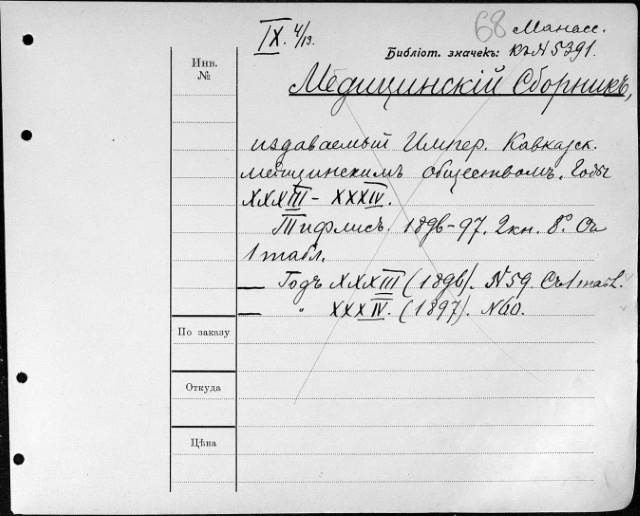 IX. 4/13.
68 Манасс.
Библіот. значекъ: КъN5391.
Инв.
№
Медицинскій Сборникъ,
издаваемый Импер. Кавказск.
медицинскимъ обществомъ. Годы
XXXIII – XXXIV.
Тифлисъ. 1896–97. 2кн. 8°. Съ
1 табл.
— Годъ XXXIII (1896). N59. Съ 1 табл.
— " XXXIV. (1897). N60.
По заказу
Откуда
Цѣна